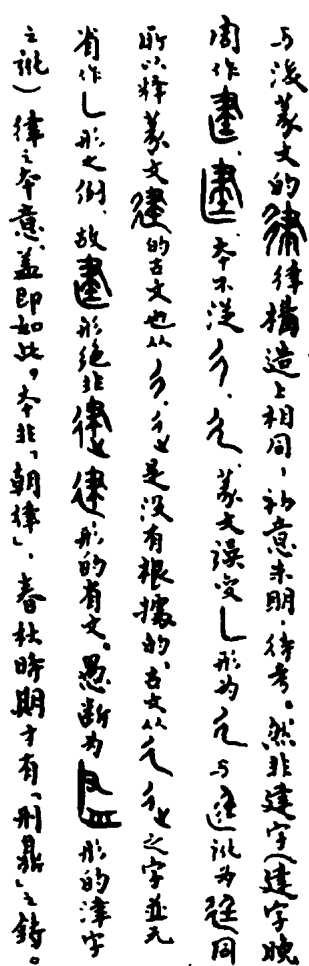 与後篆文的律構造上相同，初意未明，待考。然非建字（建字晚
周作、本不从彳、廴，篆文误变乚形为廴，与訛为同
所以釋篆文的古文也从彳、是没有根據的，古文从廴之字並无
省作乚形之例，故形绝非律形的省文。愚断为形的津字
之訛）律之本意，盖即如此。本非「朝律」，春秋時期才有「刑鼎」之鑄。